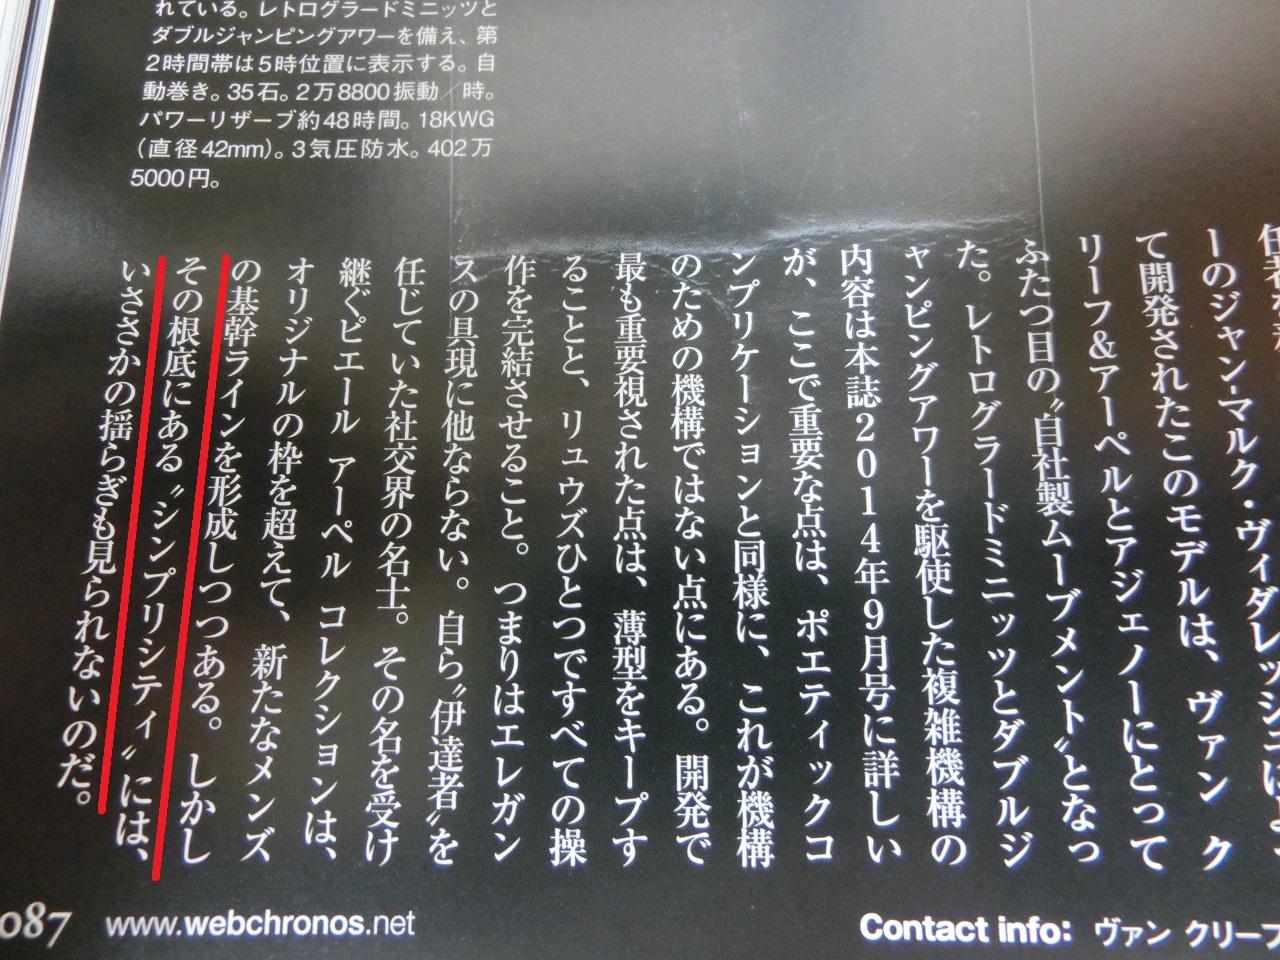 れている。レトログラードミニッツと
ダブルジャンピングアワーを備え、第
2時間帯は5時位置に表示する。自
動巻き。35石。2万8800振動／時。
パワーリザーブ約48時間。18KWG
（直径42mm）。3気圧防水。402万
5000円。
ーのジャン-マルク・ヴィダレッシュによっ
て開発されたこのモデルは、ヴァン ク
リーフ&アーペルとアジェノーにとって
ふたつ目の〝自社製ムーブメント〟となっ
た。レトログラードミニッツとダブルジ
ャンピングアワーを駆使した複雑機構の
内容は本誌2014年9月号に詳しい
が、ここで重要な点は、ポエティックコ
ンプリケーションと同様に、これが機構
のための機構ではない点にある。開発で
最も重要視された点は、薄型をキープす
ることと、リュウズひとつですべての操
作を完結させること。つまりはエレガン
スの具現に他ならない。自ら〝伊達者〟を
任じていた社交界の名士。その名を受け
継ぐピエール アーペル コレクションは、
オリジナルの枠を超えて、新たなメンズ
の基幹ラインを形成しつつある。しかし
その根底にある〝シンプリシティ〟には、
いささかの揺らぎも見られないのだ。
087 www.webchronos.net
Contact info: ヴァン クリーフ